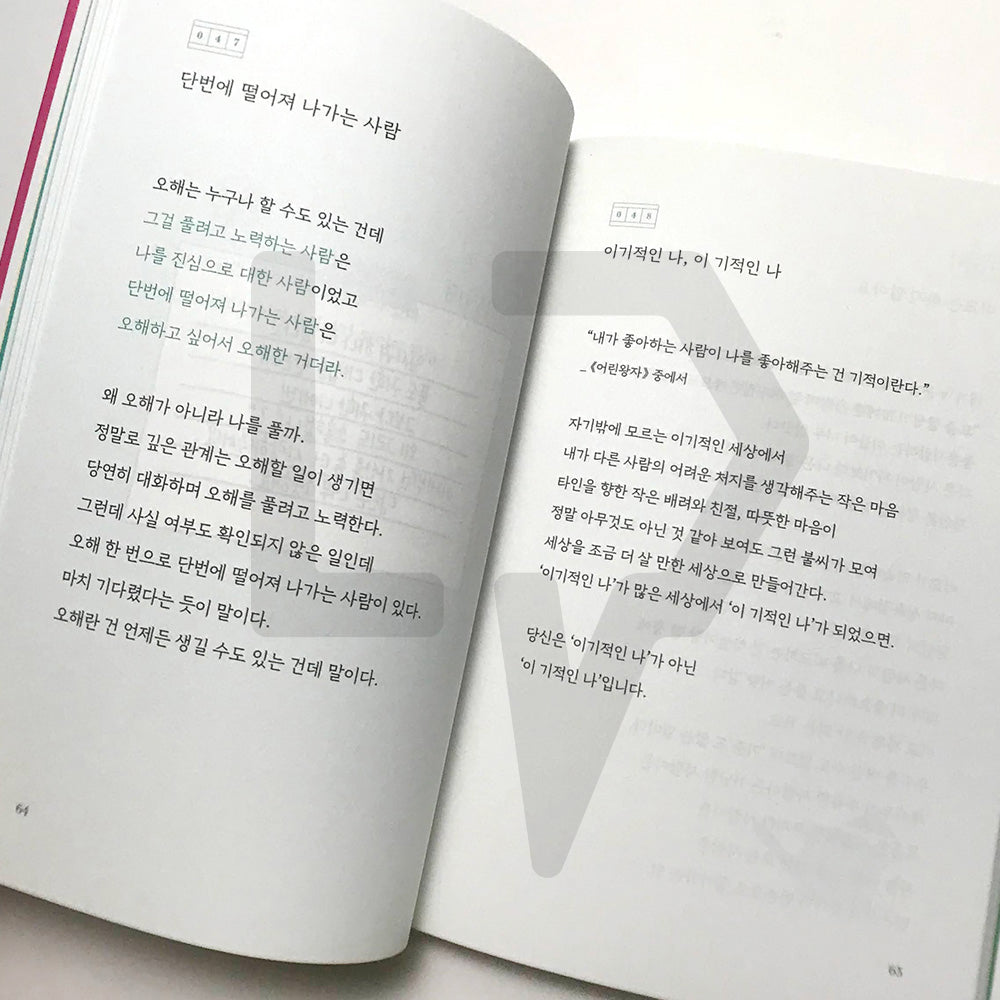 047
단번에 떨어져 나가는 사람
오해는 누구나 할 수도 있는 건데
그걸 풀려고 노력하는 사람은
나를 진심으로 대한 사람이었고
단번에 떨어져 나가는 사람은
오해하고 싶어서 오해한 거더라.
왜 오해가 아니라 나를 풀까.
정말로 깊은 관계는 오해할 일이 생기면
당연히 대화하며 오해를 풀려고 노력한다.
그런데 사실 여부도 확인되지 않은 일인데
오해 한 번으로 단번에 떨어져 나가는 사람이 있다.
마치 기다렸다는 듯이 말이다.
오해란 건 언제든 생길 수도 있는 건데 말이다.
64
048
이기적인 나, 이 기적인 나
“내가 좋아하는 사람이 나를 좋아해주는 건 기적이란다.”
_《어린왕자》 중에서
자기밖에 모르는 이기적인 세상에서
내가 다른 사람의 어려운 처지를 생각해주는 작은 마음
타인을 향한 작은 배려와 친절, 따뜻한 마음이
정말 아무것도 아닌 것 같아 보여도 그런 불씨가 모여
세상을 조금 더 살 만한 세상으로 만들어간다.
‘이기적인 나’가 많은 세상에서 ‘이 기적인 나’가 되었으면.
당신은 ‘이기적인 나’가 아닌
‘이 기적인 나’입니다.
65